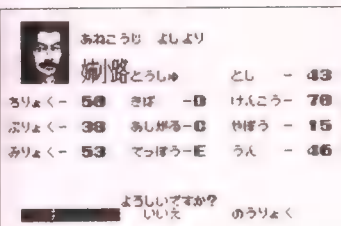 あねこうじ よしより
姉小路とうしゅ とし - 43
ちりょく- 50 きば -D けんこう- 70
ぶりょく- 38 あしがる-C やぼう - 15
みりょく- 53 てっぽう-E うん - 46
よろしいですか?
いいえ のうりょく